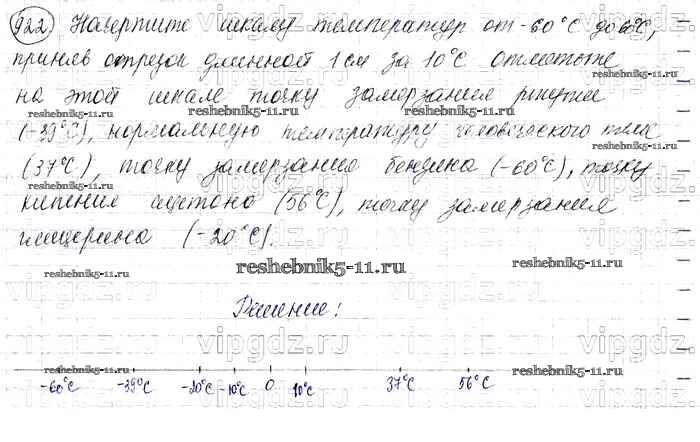 922 Начертите шкалу температур от -60°C до 60°C,
приняв отрезок длинной 1 см за 10°C отметьте
на этой шкале точку замерзания ртути
reshebnik5-11.ru reshebnik5-11.ru
(-39°C), нормальную температуру человеческого тела
(37°C), точку замерзания бензина (-60°C), точку
reshebnik5-11.ru reshebnik5-11.ru
кипения ацетона (56°C), точку замерзания
глицерина (-20°C).
reshebnik5-11.ru
reshebnik5-11.ru
Решение:
vipgdz.ru vipgdz.ru
reshebnik5-11.ru reshebnik5-11.ru
-60°C -39°C -20°C -10°C 0 10°C 37°C 56°C
reshebnik5-11.ru